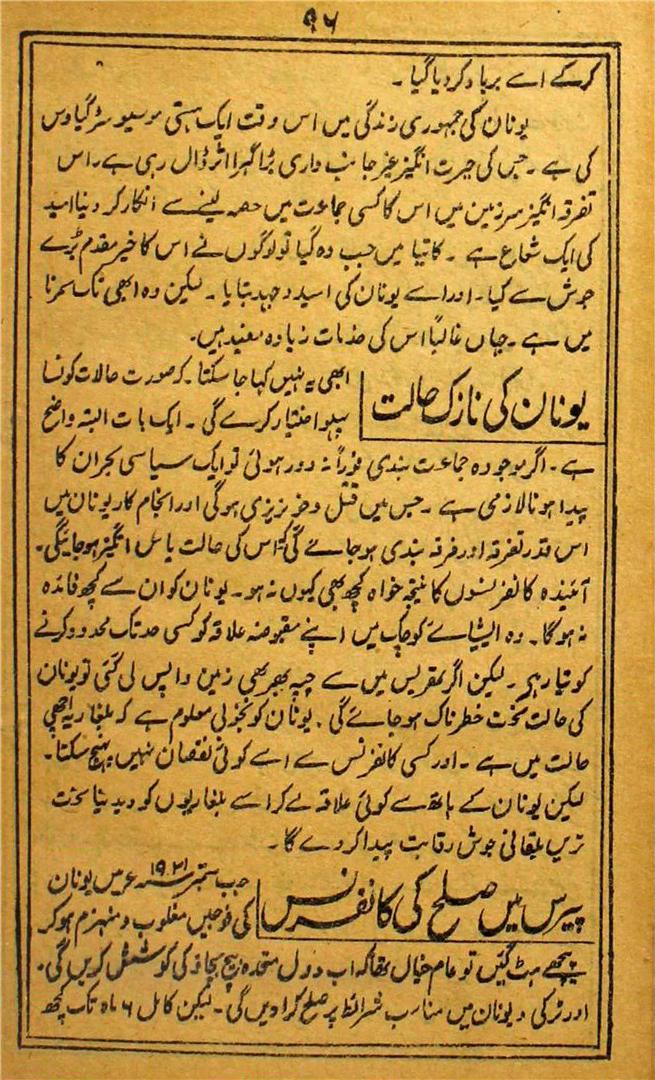 ۹۶
کرکے اسے برباد کر دیا گیا ۔
یونان کی جمہوری زندگی میں اس وقت ایک ہستی موسیو سٹرگیاوس
کی ہے ۔ جس کی حیرت انگیز غیر جانبداری بڑا گہرا اثر ڈال رہی ہے ۔ اس
تفرقہ انگیز سرزمین میں اس کا کسی جماعت میں حصہ لینے سے انکار کر دینا امید
کی ایک شعاع ہے ۔ کانیا میں جب وہ گیا تو لوگوں نے اس کا خیر مقدم بڑے
جوش سے کیا ۔ اور اسے یونان کی امید وحید بتایا ۔ لیکن وہ ابھی تک سمرنا
میں ہے ۔ جہاں غالباً اس کی خدمات زیادہ مفید ہیں ۔
یونان کی نازک حالت
ابھی یہ نہیں کہا جا سکتا ۔ کہ صورت حالات کونسا
پہلو اختیار کرے گی ۔ ایک بات البتہ واضح
ہے ۔ اگر موجودہ جماعت بندی فوراً نہ دور ہوئی تو ایک سیاسی بحران کا
پیدا ہونا لازمی ہے ۔ جس میں قتل و خونریزی ہوگی اور انجام کار یونان میں
اس قدر تفرقہ اور فرقہ بندی ہو جائے گی کہ اس کی حالت یاس انگیز ہو جائیگی ۔
آئیندہ کانفرنسوں کا نتیجہ خواہ کچھ بھی کیوں نہ ہو ۔ یونان کو ان سے کچھ فائدہ
نہ ہوگا ۔ وہ ایشیائے کوچک میں اپنے مقبوضہ علاقہ کو کسی حد تک محدود کرنے
کو تیار ہے ۔ لیکن اگر تھریس میں سے چپہ بھر بھی زمین واپس لی گئی تو یونان
کی حالت سخت خطرناک ہو جائے گی ۔ یونان کو بخوبی معلوم ہے کہ بلغاریہ اچھی
حالت میں ہے ۔ اور کسی کانفرنس سے اسے کوئی نقصان نہیں پہنچ سکتا ۔
لیکن یونان کے ہاتھ سے کوئی علاقہ لے کر اسے بلغاریوں کو دیدینا سخت
ترین بلقانی جوش رقابت پیدا کر دے گا ۔
پیرس میں صلح کی کانفرنس
جب ستمبر ۱۹۲۱ء میں یونان
کی فوجیں مغلوب و منہزم ہو کر
پیچھے ہٹ گئیں تو عام خیال تھا کہ اب دول متحدہ بیچ بچاؤ کی کوشش کریں گی ۔
اور ٹرکی و یونان میں مناسب شرائط پر صلح کرا دیں گی ۔ لیکن کامل ۶ ماہ تک کچھ